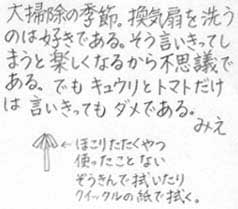 大掃除の季節。換気扇を洗う
のは好きである。そう言いきってし
まうと楽しくなるから不思議で
ある。でもキュウリとトマトだけ
は言いきってもダメである。
みえ
←ほこりたたくやつ
使ったことない
ぞうきんで拭いたり
クイックルの紙で拭く。